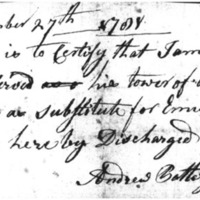 ber 27th 1781
is to Certify that Jam
erved his tower of
as substitute for Em
hereby Discharged
Andrew Batti